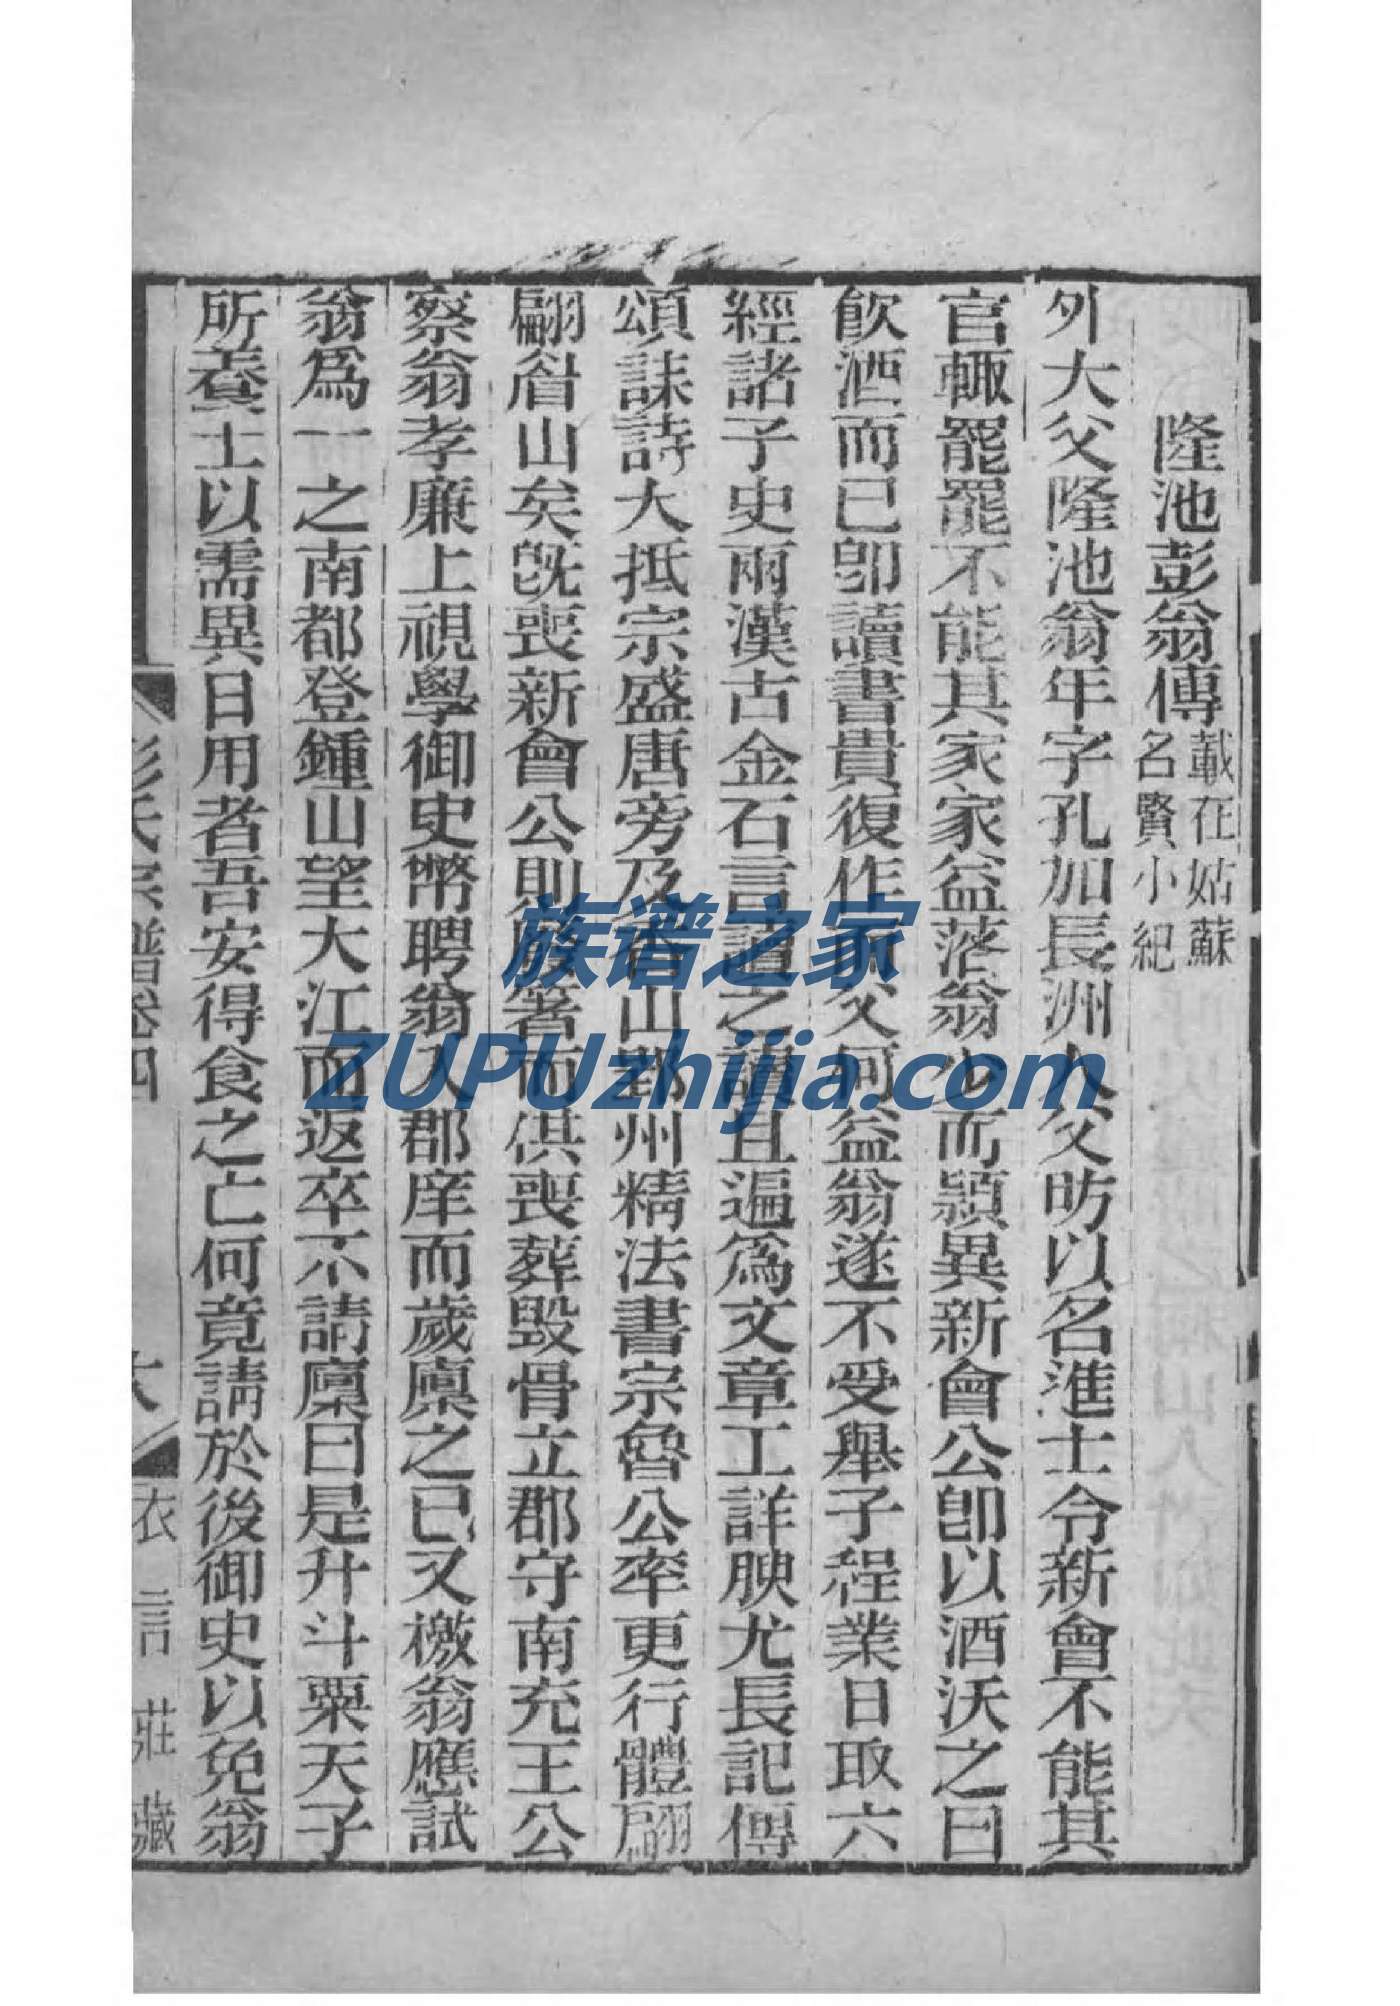 隆池彭翁傳載在姑蘇名賢小紀
外大父隆池翁年字孔加長洲人父昉以名進士令新會不能其
官輙罷罷不能其家家益落翁少而頴異新會公卽以酒沃之曰
飮酒而已卽讀書貴復作乃父何益翁遂不受舉子程業日取六
經諸子史兩漢古金石言讀之讀且遍爲文章工詳腴尤長記傳
頌誄詩大抵宗盛唐旁及香山郢州精法書宗魯公率更行體翩
翩眉山矣旣喪新會公則廢箸而俱喪葬毀骨立郡守南充王公
察翁孝廉上視學御史幣聘翁入郡庠而歲廩之已又檄翁應試
翁爲一之南都登鍾山望大江而返卒不請廩曰是升斗粟天子
所養士以需異日用者吾安得食之亡何竟請於後御史以免翁
彭氏宗譜卷四
六
衣言莊藏
族谱之家
ZUPUzhijia.com